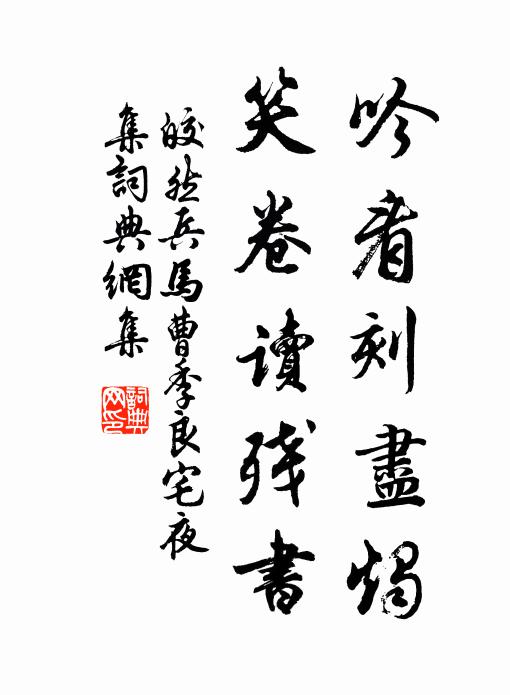 吟看刻盡燭
笑卷讀殘書
皎然兵馬曹季良宅夜
集詞典網集
詞典
网印